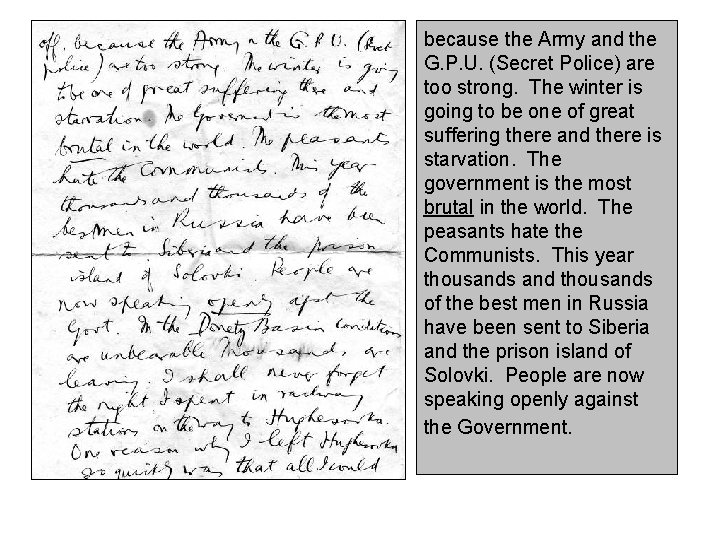 off, because the Army & the G.P.U. (Secret
police) are too strong. The winter is going
to be one of great suffering there and
starvation. The Government is the most
brutal in the world. The peasants
hate the Communists. This year
thousands and thousands of the
best men in Russia have been
sent to Siberia and the prison
island of Solovki. People are
now speaking openly agst the
Govt. In the Donetz Basin conditions
are unbearable. Thousands are
leaving. I shall never forget
the night I spent in railway
station on the way to Hughesovka.
One reason why I left Hughesovka
so quickly was that all I could
because the Army and the
G.P.U. (Secret Police) are
too strong.  The winter is
going to be one of great
suffering there and there is
starvation.  The
government is the most
brutal in the world.  The
peasants hate the
Communists.  This year
thousands and thousands
of the best men in Russia
have been sent to Siberia
and the prison island of
Solovki.  People are now
speaking openly against
the Government.